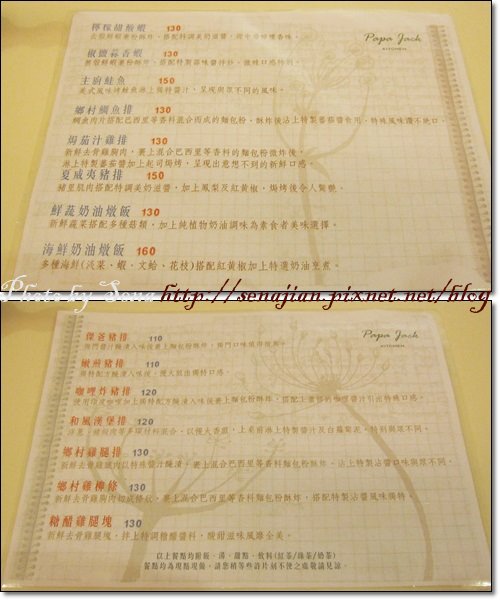 檸檬甜微蝦 130
椒鹽蒜香蝦 130
主廚鮭魚 150
美式風味烤鮭魚淋上獨特醬汁，呈現與眾不同的風味。
Papa Jack
KITCHEN
鄉村鯛魚排 130
鯛魚肉片搭配巴西里等香料混合而成的麵包粉，酥炸後沾上特製蕃茄醬食用，特殊風味讚不絕口。
焗茄汁雞排 130
新鮮去骨雞胸肉，裹上混合巴西里等香料的麵包粉微炸後，
淋上特製蕃茄醬加上起司焗烤，呈現出意想不到的新鮮口感。
夏威夷豬排 150
豬里肌肉搭配特調美奶滋醬，加上鳳梨及紅黃椒，焗烤後令人驚艷。
鮮蔬奶油燉飯 130
新鮮蔬菜搭配多種菇類，加上純植物奶油調味為素食者美味選擇。
海鮮奶油燉飯 160
多種海鮮(淡菜、蝦、文蛤、花枝)搭配紅黃椒加上特選奶油烹煮。
Photo by Sena http://senajian.pixnet.net/blog
Papa Jack
KITCHEN
傑爸豬排 110
嫩煎豬排 110
咖哩炸豬排 120
和風漢堡排 120
鄉村雞腿排 130
新鮮去骨雞腿肉以特殊醬汁醃漬，裹上混合巴西里等香料麵包粉酥炸，沾上特製醬口味與眾不同。
鄉村雞柳條 130
新鮮去骨雞胸肉切成條狀，裹上混合巴西里等香料麵包粉酥炸，搭配特製沾醬風味獨特。
糖醋雞腿塊 130
新鮮去骨雞腿塊，拌上特調糖醋醬料，酸甜滋味風雅全美。
以上餐點均附飯、湯、甜點、飲料(紅茶/綠茶/奶茶)
餐點均為現點現做，請您稍等些許片刻不便之處敬請見諒。